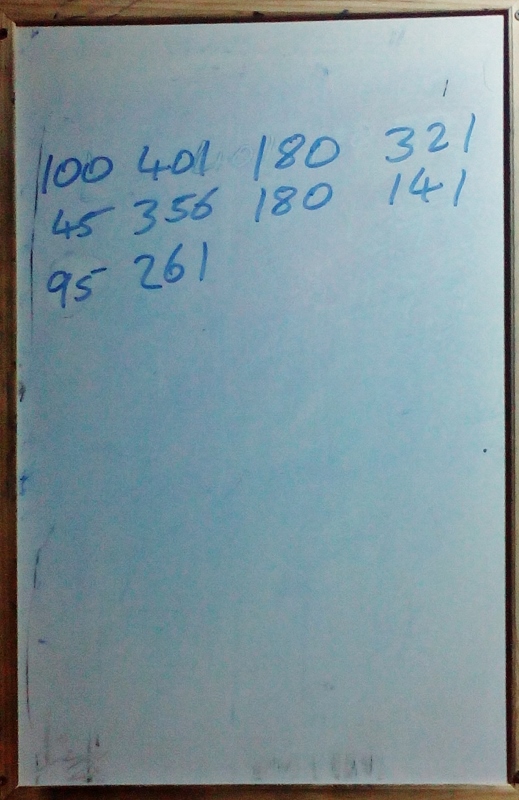 100 401 180 321
45 356 180 141
95 261